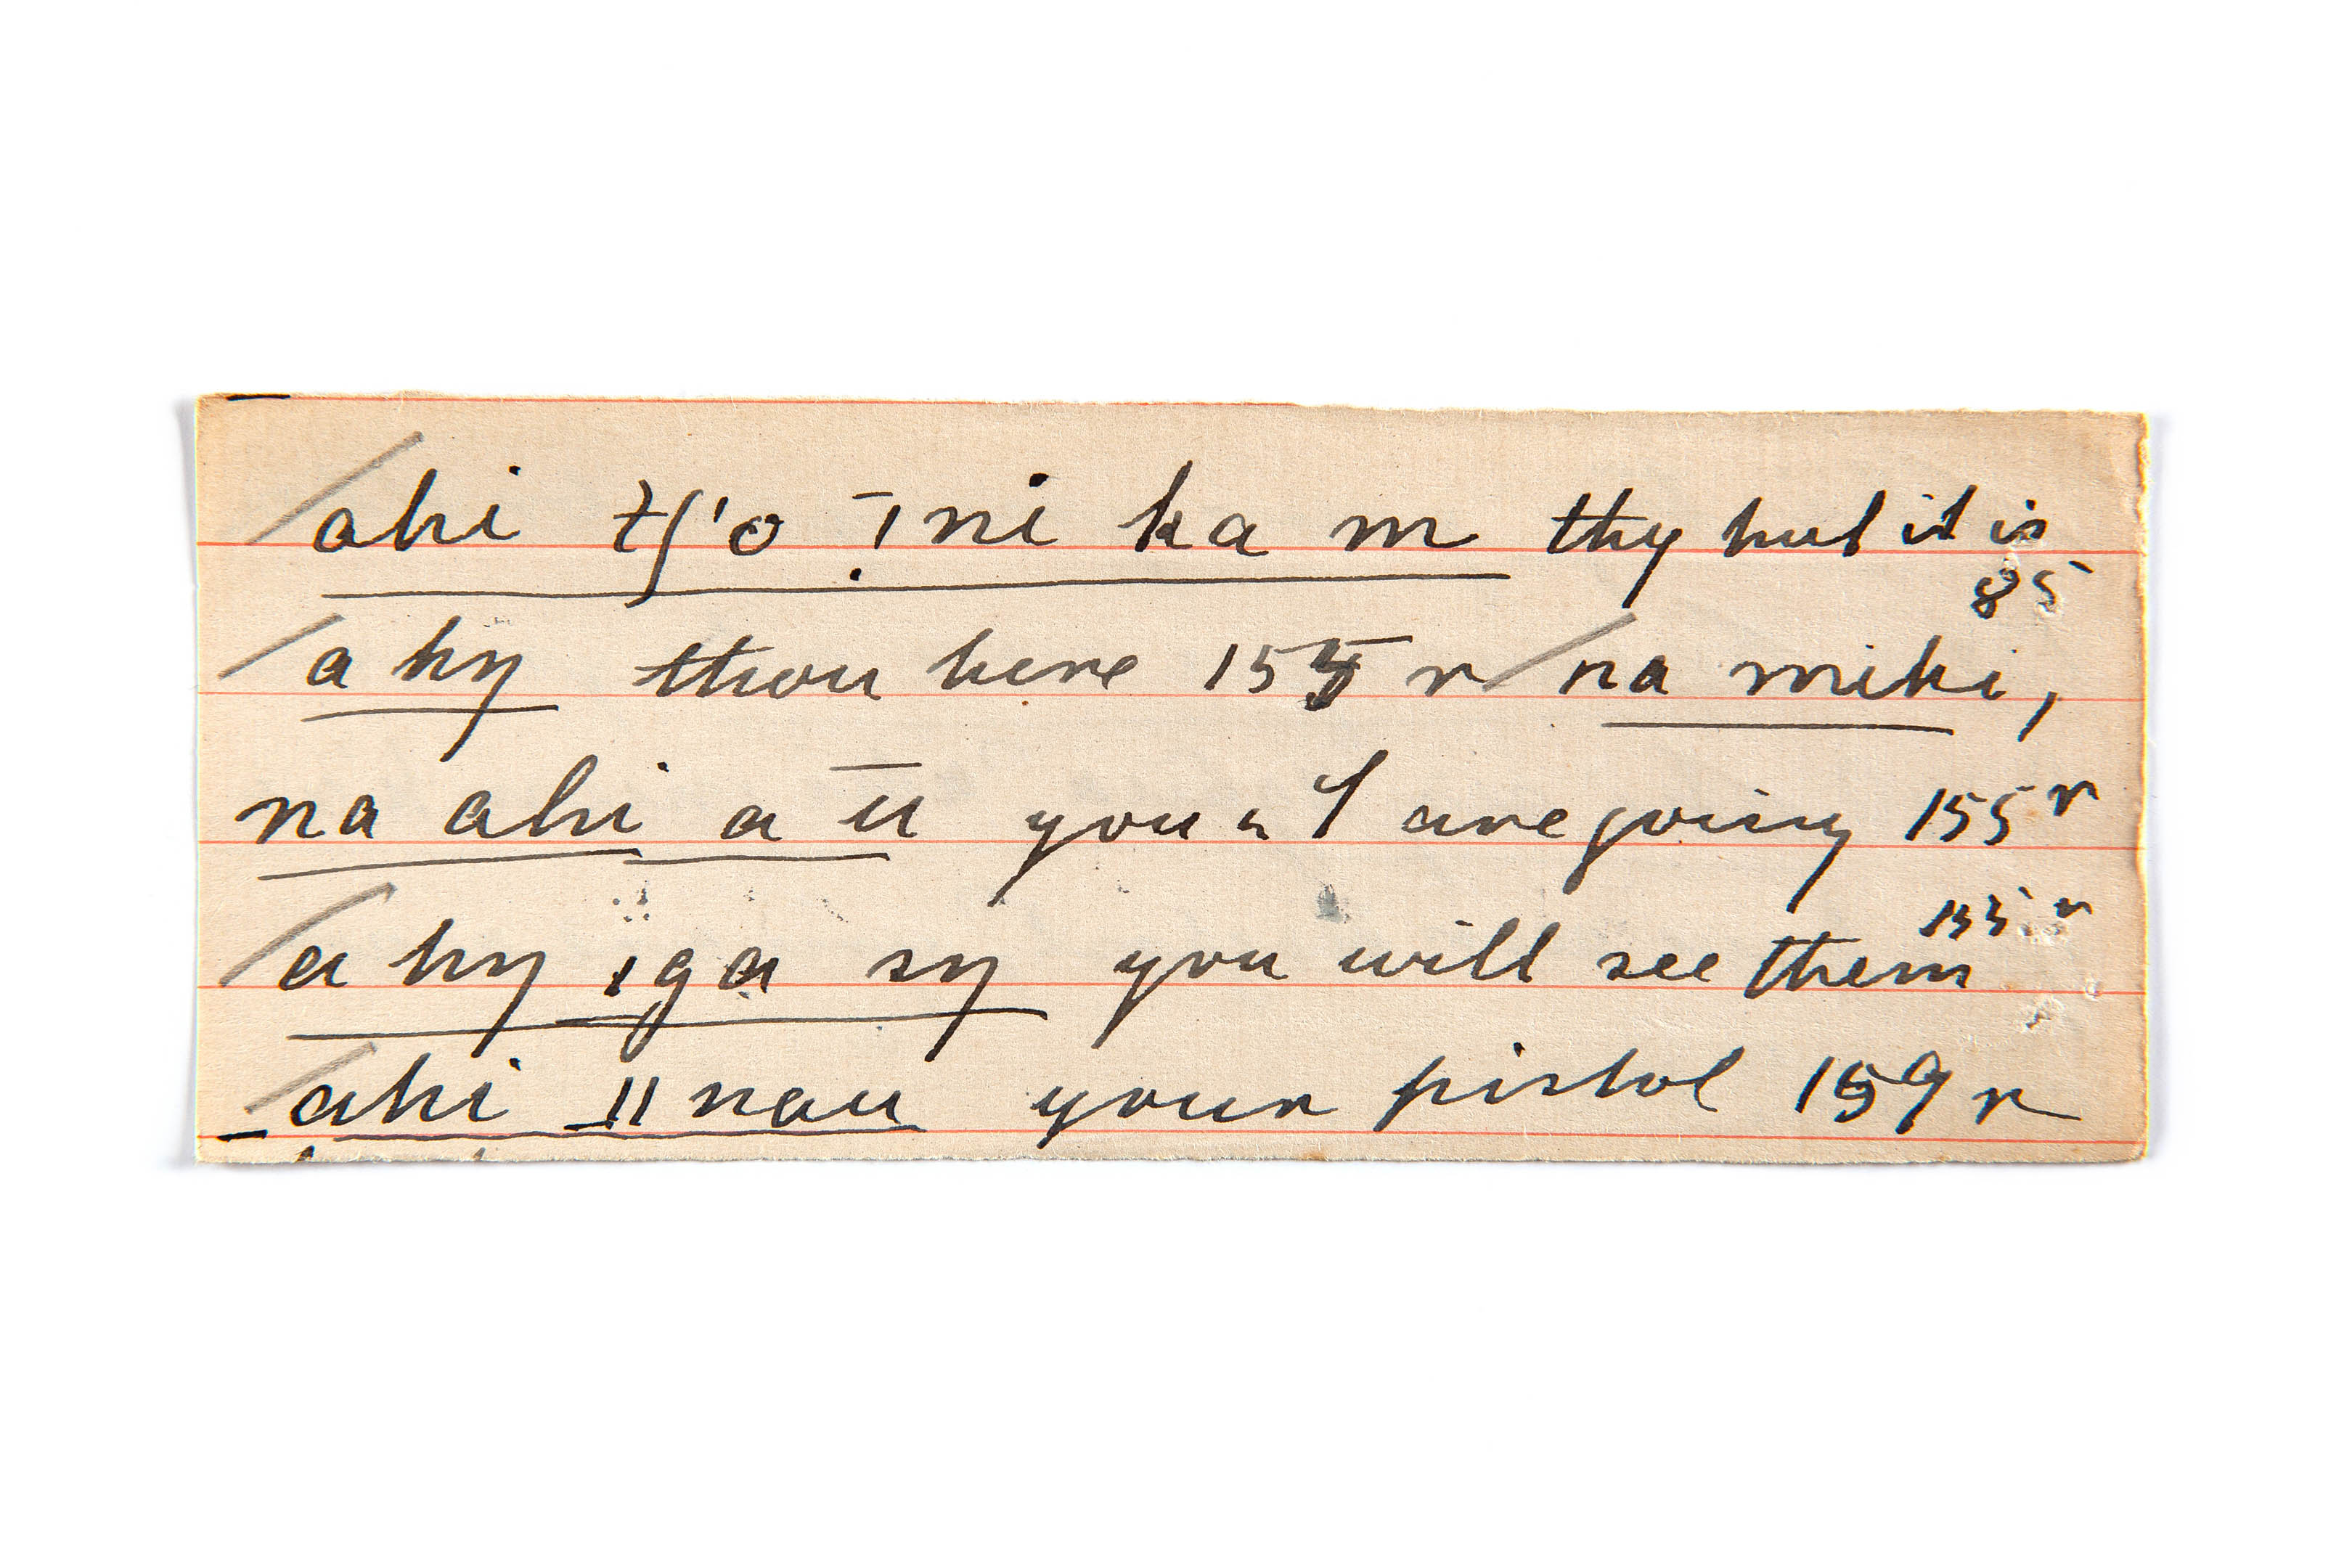 ahi tʃ'o īni ka m thy hut it is
85
a hy thou here 155 r na mihi,
na ahi a ū you & I are going 155 r
155 r
a hy iga sy you will see them
ahi īī nau your pistol 159 r